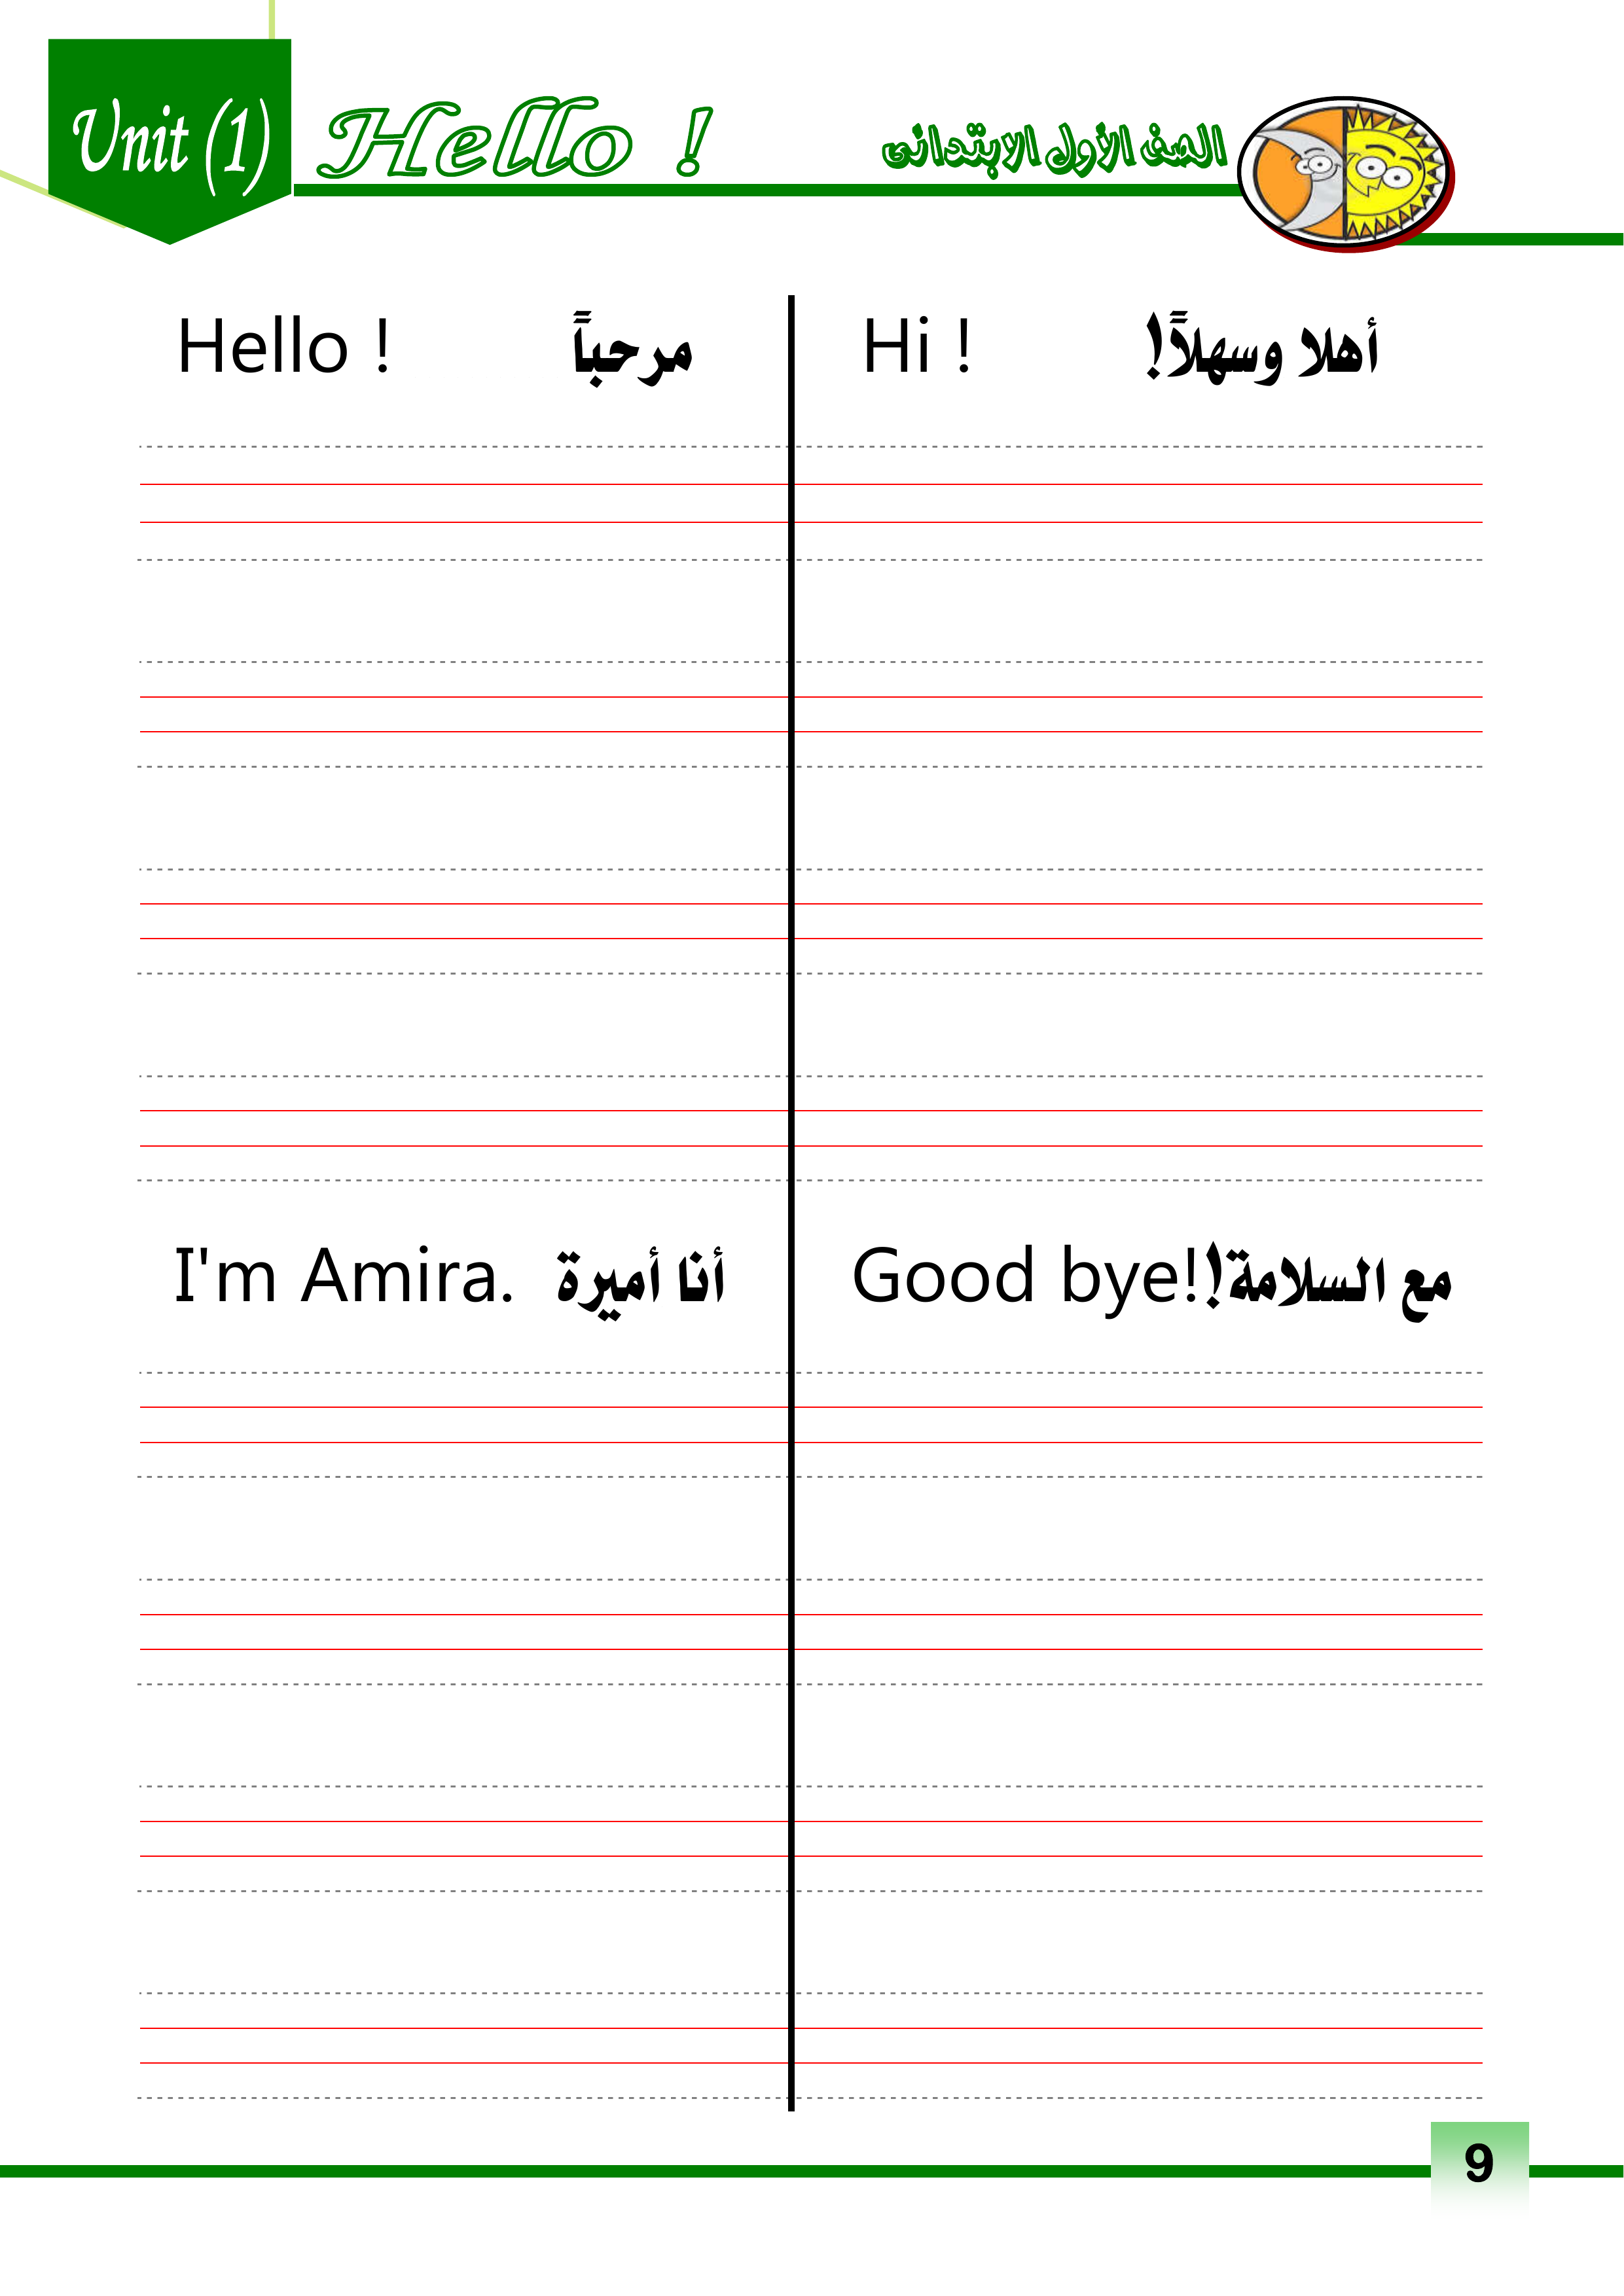 Unit (1) Hello ! الصف الأول الابتدائى
Hello ! مرحباً Hi ! أهلا وسهلاً!
I'm Amira. أنا أميرة Good bye! مع السلامة!
9